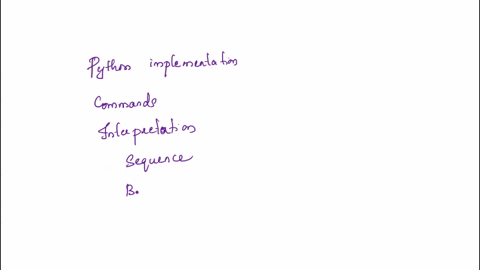 Python implementation
Commands
Interpretation
Sequence
B.